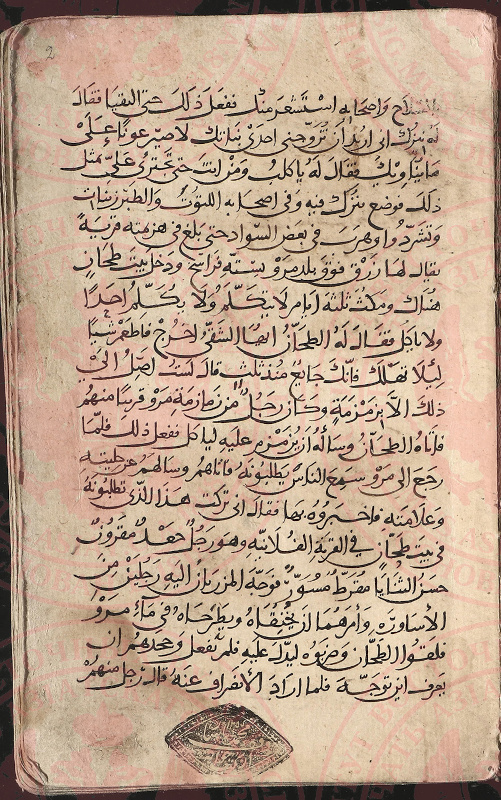 2
السلاح واصحابه استشعر منك ففعل ذلك حتى التقيا فقال
له نيزك انى اريد أن تزوجنى احدى بناتك لاصير عونا على
فقال له يا كلب ومن انت حتى تجترئ على بمثل
ذلك فوضع نيزك فيه وفى اصحابه
وتشردوا وهرب فى بعض السواد حتى بلغ فى هزيمته قرية
يقال لها زرق فوق بلد مرو بستة فراسخ ودخل بيت طحان
هناك ومكث ثلثة ايام لا يتكلم ولا يكلم احدا
ولا ياكل فقال له الطحان ايها الشقى اخرج فاطعم شيئا
ليلا تهلك فانك جايع منذ ثلث قال لست اصل الى
ذلك الا بزمزمة وكان رجل من زمازمة مرو قريبا منهم
فاتاه الطحان وسأله أن يزمزم عليه لياكل ففعل ذلك فلما
رجع الى مرو سمع الناس يطلبونه فاتاهم وسالهم عن حليته
وعلامته فاخبروه بها فقال انى تركت هذا الذى تطلبونه
فى بيت طحان فى القرية الفلانية وهو رجل جعد مقرون
حسن الثنايا مقرط مسور فوجه المرزبان اليه رجلين من
الأساورة وأمرهما أن يخنقاه ويطرحاه فى ماء مرو
فلقوا الطحان وضربوه ليدل عليه فلم يفعل وجحدهم ان
يعرف اين توجه فلما اراد الانصراف عنه قال رجل منهم